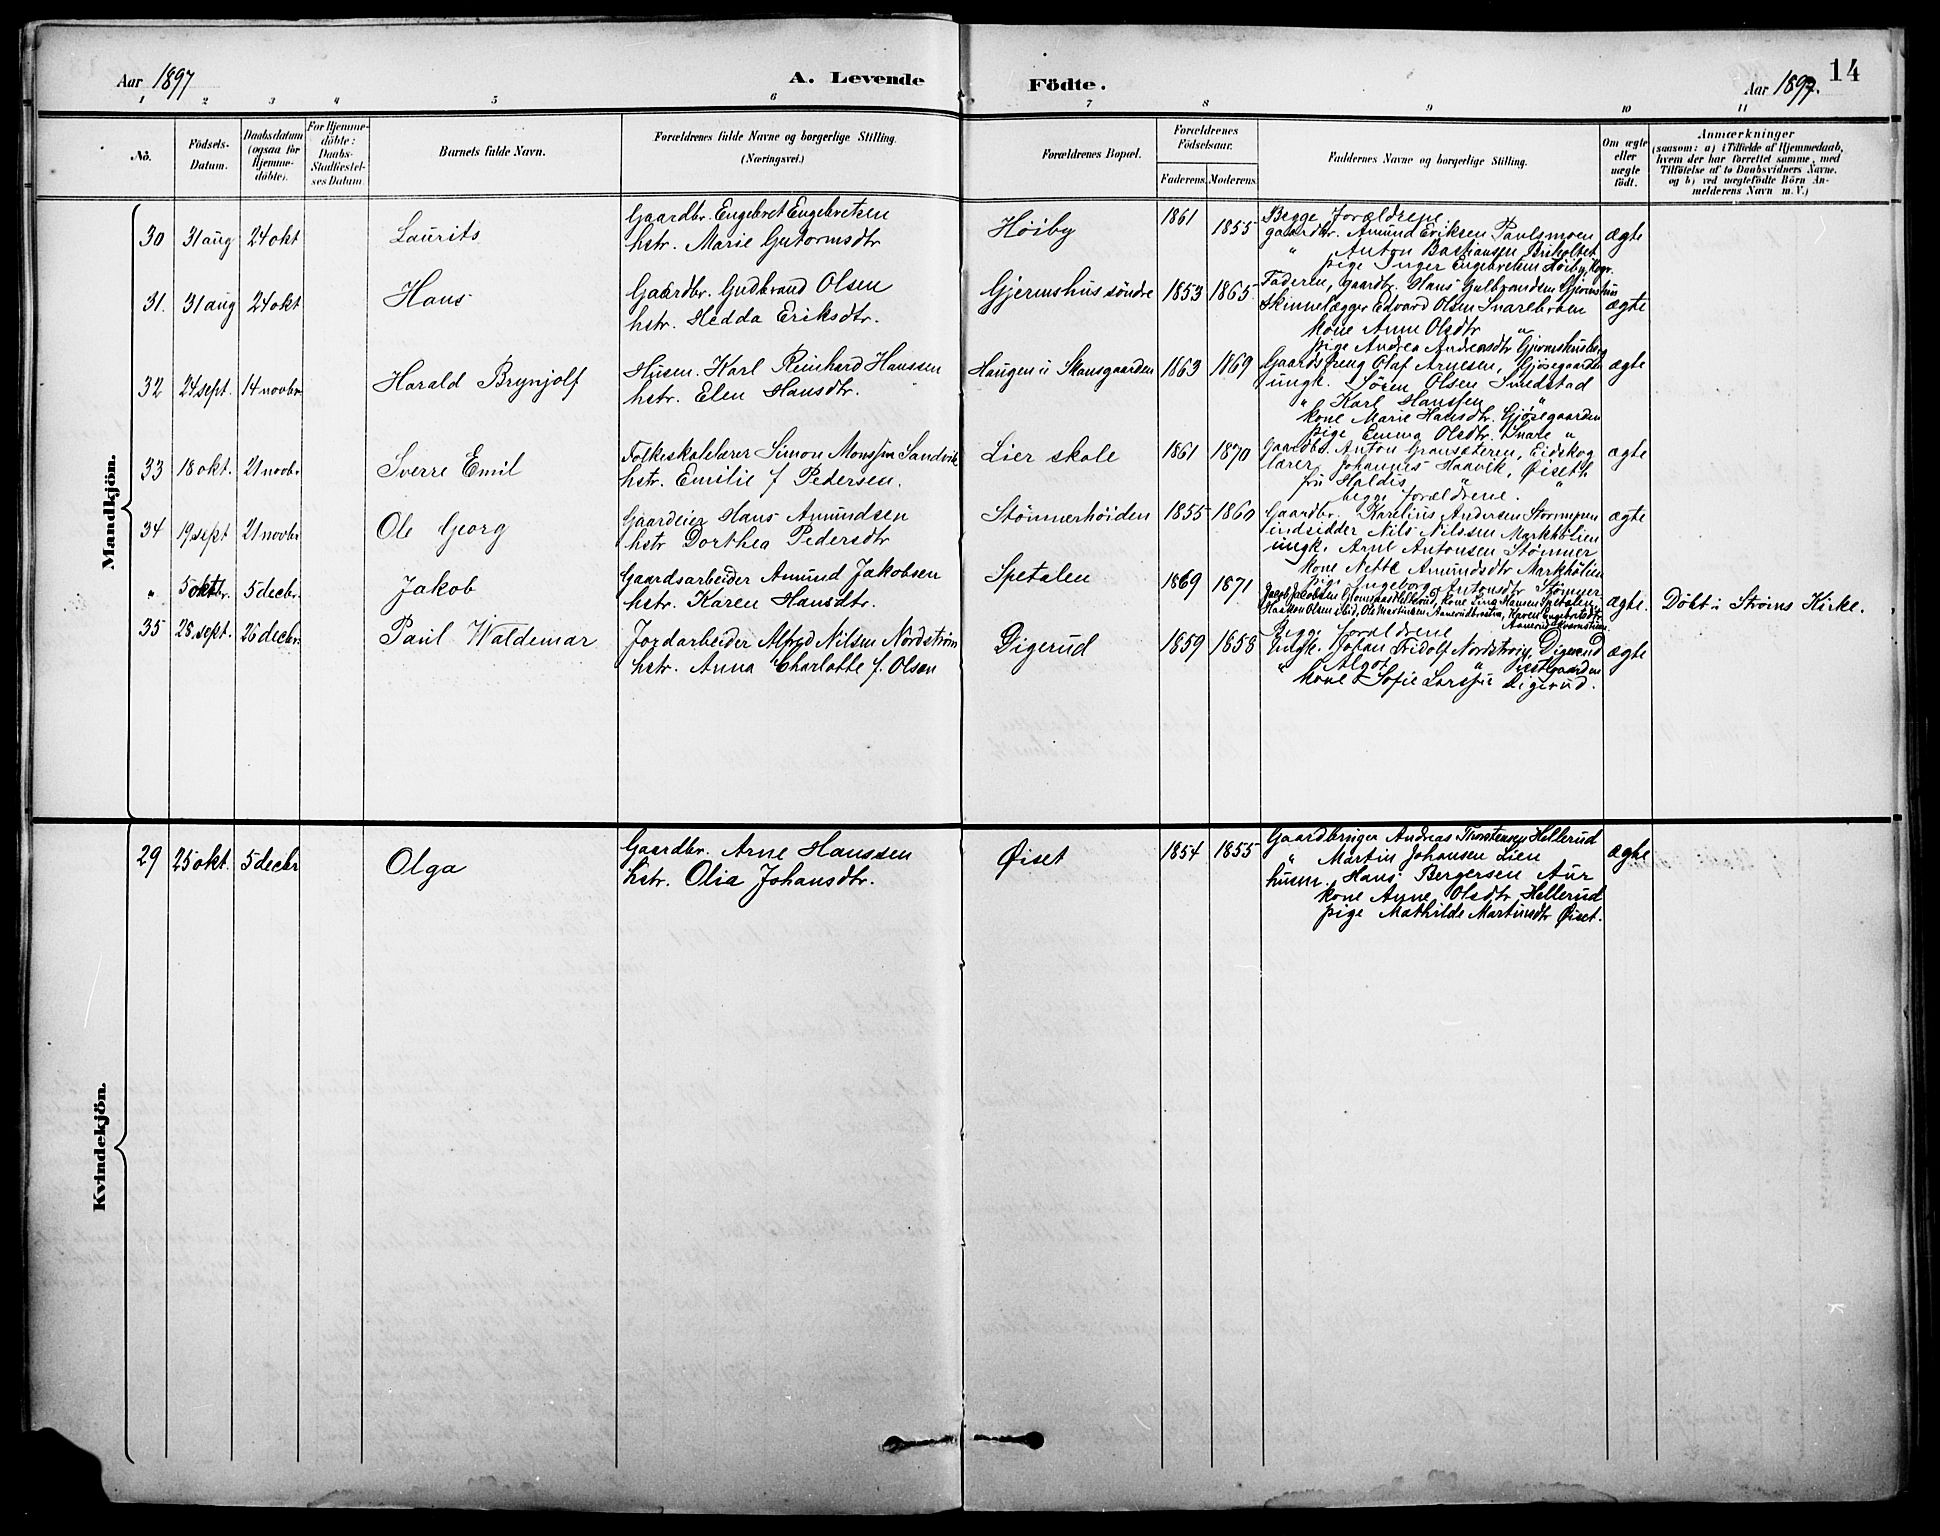 Aar 1897
A. Levende Födte.
Aar 1897.
14
1 2 3 4 5 6 7 8 9 10 11
No.
Födsels-
Datum.
Daabsdatum
(ogsaa for
Hjemme-
döbte).
For Hjemme-
döbte:
Daabs-
Stadfæstel-
ses Datum.
Barnets fulde Navn.
Forældrenes fulde Navne og borgerlige Stilling.
(Næringsvei.)
Forældrenes Bopæl.
Forældrenes
Födselsaar.
Faderens. Moderens.
Faddernes Navne og borgerlige Stilling.
Om ægte
eller
uægte
födt.
Anmærkninger
(saasom: a) i Tilfælde af Hjemmedaab,
hvem der har forrettet samme, med
Tilföielse af to Daabsvidners Navne,
og b) ved uægtefödte Börn An-
melderens Navn m. V.)
Mandkjön.
30 31 aug 24 okt Laurits
Gaardbr. Engebret Engebretsen
hstr. Marie Gutormsdtr
Höiby 1861 1855
Begge Forældrene
gaardbr. Amund Eriksen Paulsmoen
" Anton Bastiansen
pige Inger Engebretsen Höiby,
ægte
31. 31 aug 24 okt Hans
Gaardbr. Gudbrand Olsen
hstr. Hedda Eriksdtr.
Gjermshus söndre 1853 1865
Faderen, gaardbr. Hans Gulbrandsen Gjermshus
Skinnelægger Edvard Olsen Snarebraaen
kone Anne Olsdtr "
pige Andrea Andreasdtr
ægte
32 24 sept. 14 novbr Harald Brynjolf
Husm. Karl Reinhard Hanssen
hstr. Elen Hansdtr.
Haugen u Skansgaarden 1863 1869
Gaardsdreng Olaf Arnesen, Gjösegaarden
ungk. Sören Olsen Sundstad
" Karl Hanssen "
kone Marie Hansdtr. Gjösegaarden
pige Emma Olsdtr. Snare "
ægte
33 18 okt. 21 novbr Sverre Emil
Folkeskolelærer Simon Monssen Sandvik
hstr. Emilie f Pedersen.
Lier skole 1861 1870
Gaardbr. Anton Gransæteren, Eidskog
lærer Johannes Haavik, Öiseth
fru Haldis " "
begge forældrene.
ægte
34 19 sept 21 novbr Ole Georg
Gaardeier Hans Amundsen
hstr Dorthea Pedersdtr
Stömmerhöiden 1855 1860
Gaardbr. Karelius Andersen
indsidder Nils Nilssen Markhölien
ungk. Arne Antonsen Stömner
kone Nette Amundsdtr Markhölien
pige Ingeborg Antonsdtr Stömner
ægte
" 5 oktbr. 5 decbr. Jakob
Gaardsarbeider Amund Jakobsen
hstr. Karen Hansdtr.
Spetalen 1869 1871
ægte. Döbt i Ströms Kirke.
35 28 sept. 26 decbr. Paul Waldemar
Jordarbeider Alfred Nilsen Nordström
hstr. Anna Charlotte f. Olsen
Digerud 1859 1858
Begge forældrene
Ungk. Johan Fridolf Nordström, Digerud
" Algot " Vestgaarden
kone Sofie Larssen Digerud.
ægte
Kvindekjön.
29 25 okt. 5 decbr Olga
Gaardbr. Arne Hanssen
hstr. Olia Johansdtr.
Öiset 1854 1855
Gaardbruger Andreas Thorstensen Hellerud
" Martin Johansen Lien
husm. Hans Bergersen Aur
kone Anne Olsdtr Hellerud
pige Mathilde Martinsdtr Öiset.
ægte